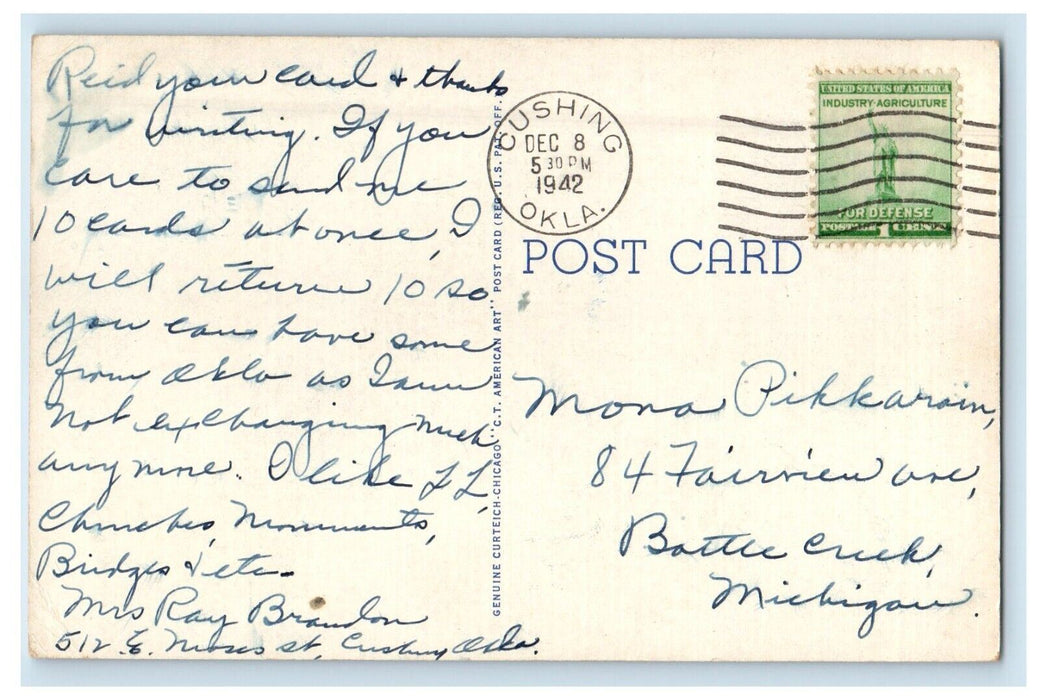 Reid your card & thanks
for writing. If you
care to send me
10 cards at once, I
will return 10 so
you can have some
from Okla as I am
not exchanging much
any more. I like L L,
Churches, Monuments,
Bridges & etc.
Mrs Ray Brandon
512 E. Moses st, Cushing Okla.
GENUINE CURTEICH-CHICAGO "C.T. AMERICAN ART" POST CARD (REG. U.S. PAT. OFF.
CUSHING
DEC 8
5 30 PM
1942
OKLA.
UNITED STATES OF AMERICA
INDUSTRY·AGRICULTURE
FOR DEFENSE
POSTAGE 1 CENT
POST CARD
Mona Pikkarain,
84 Fairview ave,
Battle Creek,
Michigan.